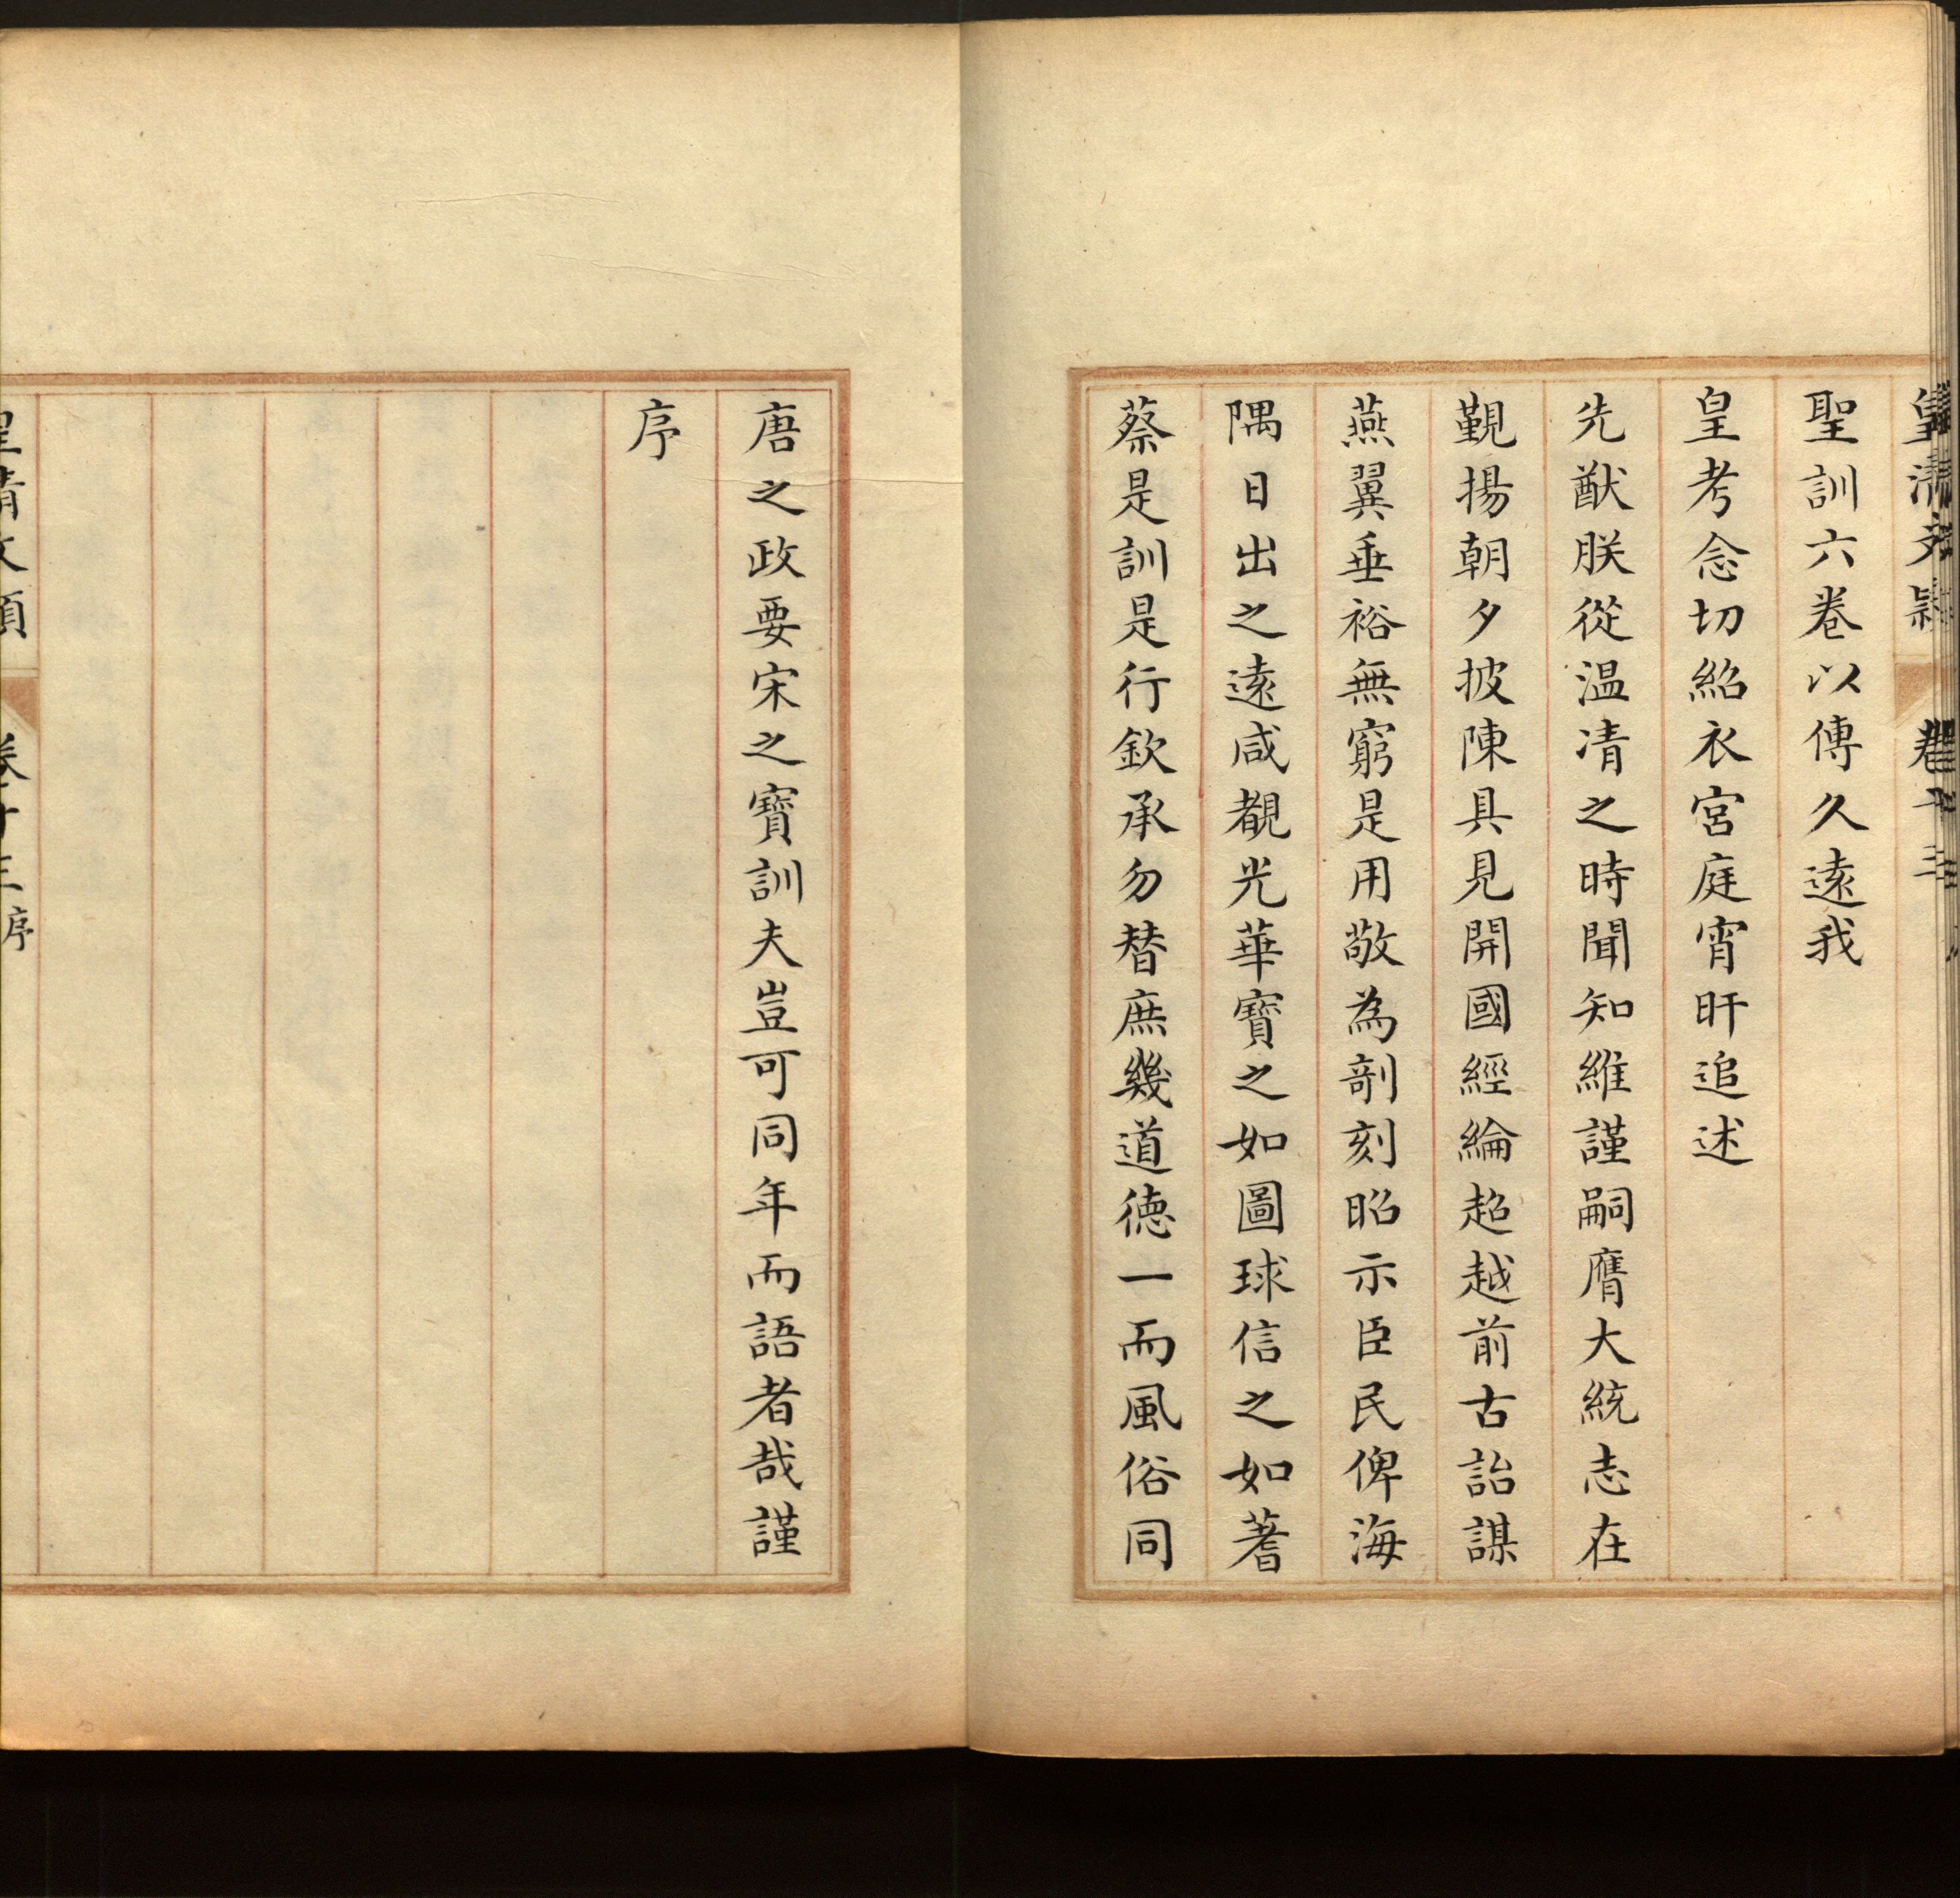 皇清文穎 卷十三
聖訓六卷以傳久遠我
皇考念切紹衣宮庭宵旰追述
先猷朕從温凊之時聞知維謹嗣膺大統志在
覲揚朝夕披陳具見開國經綸超越前古詒謀
燕翼垂裕無窮是用敬為剞刻昭示臣民俾海
隅日出之遠咸覩光華寶之如圖球信之如蓍
蔡是訓是行欽承勿替庶幾道德一而風俗同
唐之政要宋之寶訓夫豈可同年而語者哉謹
序
皇清文穎 卷十三 序